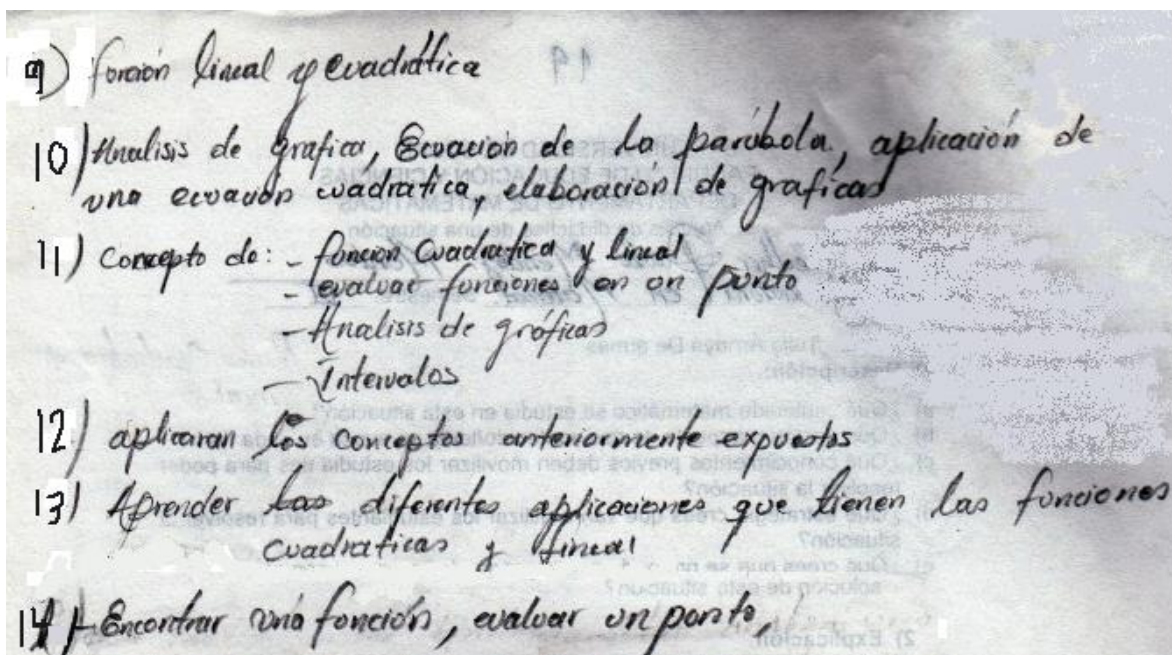 9) función lineal y cuadrática
10) Analisis de grafica, Ecuación de la parábola, aplicación de
una ecuación cuadratica, elaboración de graficas
11) Concepto de: - función cuadratica y lineal
- evaluar funciones en un punto
- Analisis de gráficas
- Intervalos
12) aplicaran los conceptos anteriormente expuestos
13) Aprender las diferentes aplicaciones que tienen las funciones
cuadraticas y lineal
14) - Encontrar una función, evaluar un punto,